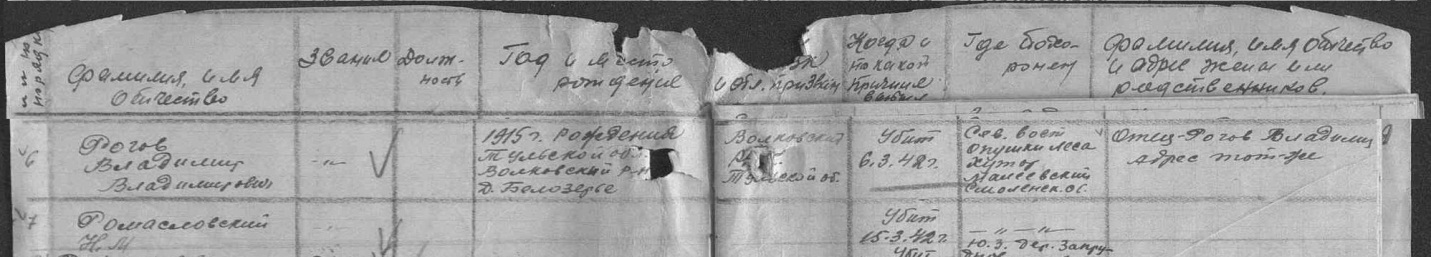 фамилия, имя
Отчество
Звание
Долж-
ность
Год и место
рождения
и обл. призван
Когда и
по какой
причине
выбыл
Где Похо-
ронен
Фамилия, имя отчество
и адрес жены или
родственников.
6
Рогов
Владимир
Владимирович
-"-
1915 г. рождения
Тульской обл.
Воловский р-н
д. Белозерье
Воловский
Тульской об.
Убит
6.3.42 г.
Сев. вост
Опушки леса
хутор
Смоленск. об.
Отец-Рогов Владимир
адрес тот-же
7
Ромасловский
Н. М
Убит
15.3.42 г.
Убит
-"-"-
Ю.З. дер. Запру-
дное